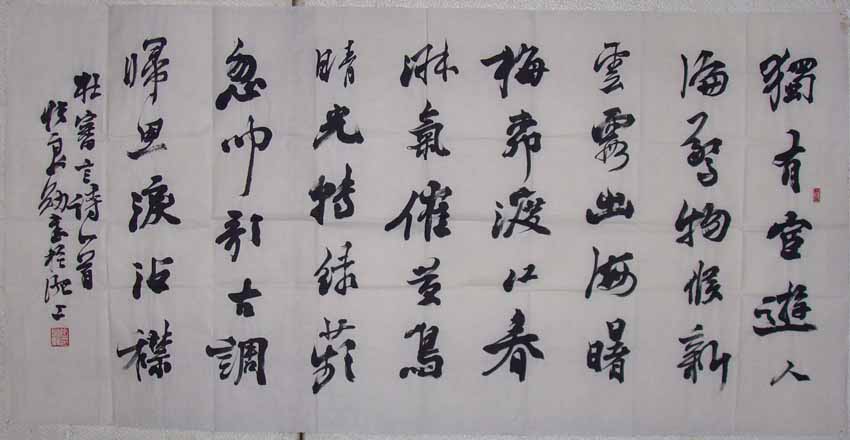 獨有宦遊人
偏驚物候新
雲霞出海曙
梅柳渡江春
淑氣催黃鳥
晴光轉綠蘋
忽聞歌古調
歸思淚沾襟
杜審言詩一首
書於上